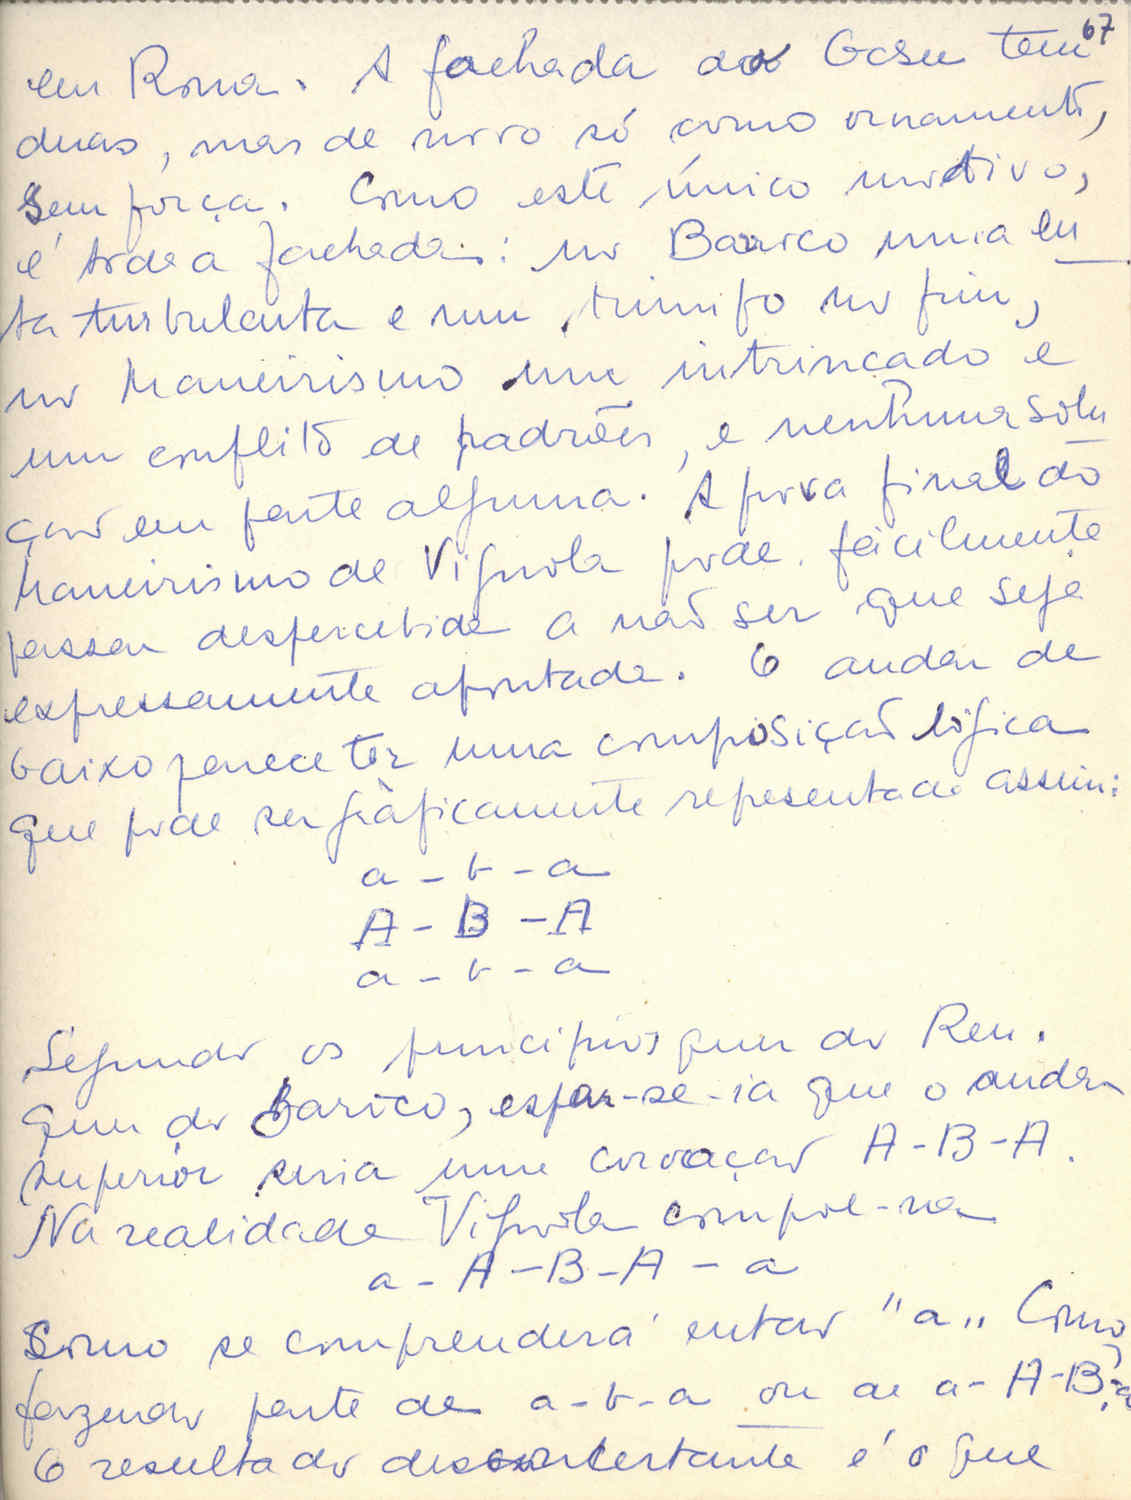 67
em Roma. A fachada do Gesu tem
duas, mas de novo só como ornamento,
sem força. Como este único motivo,
é toda a fachada: no Barroco uma lu
ta turbulenta e um triunfo no fim,
no Maneirismo um intrincado e
um conflito de padrões, e nenhuma solu
ção em parte alguma. A prova final do
Maneirismo de Vignola pode fàcilmente
passar despercebida a não ser que seja
expressamente apontada. O andar de
baixo parece ter uma composição lógica
que pode ser gràficamente representada assim:
a - b - a
A - B - A
a - b - a
Segundo os principios quer do Ren.
quer do Barroco, esperar-se-ia que o andar
superior seria uma coroação A-B-A.
Na realidade Vignola compoe-na
a - A - B - A - a
Como se comprenderá então "a" Como
fazendo parte de a-b-a ou de a-A-B-a
O resultado desconcertante é o que